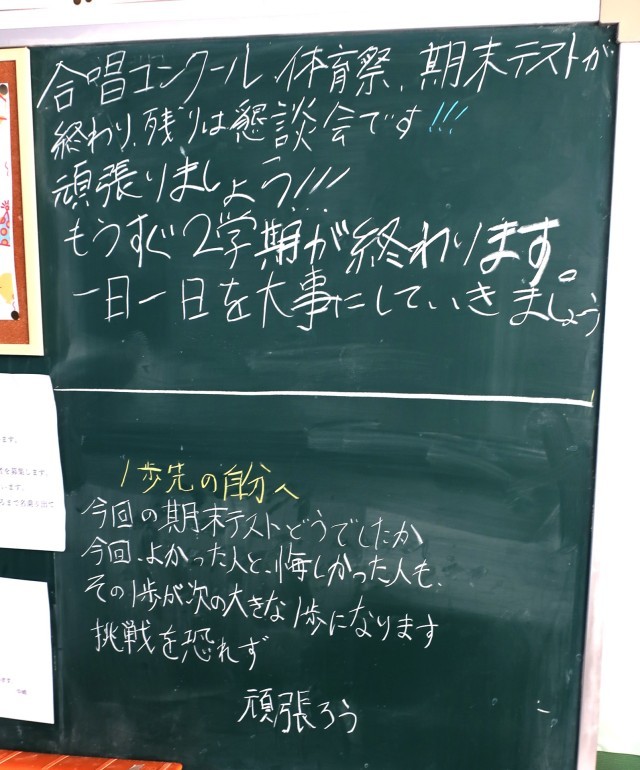 合唱コンクール、体育祭、期末テストが
終わり、残りは懇談会です!!!
頑張りましょう!!!
もうすぐ2学期が終わります。
一日一日を大事にしていきましょう
1歩先の自分へ
今回の期末テストどうでしたか
今回、よかった人と、悔しかった人も、
その1歩が次の大きな1歩になります
挑戦を恐れず
頑張ろう
ます。
を募集します。
います。